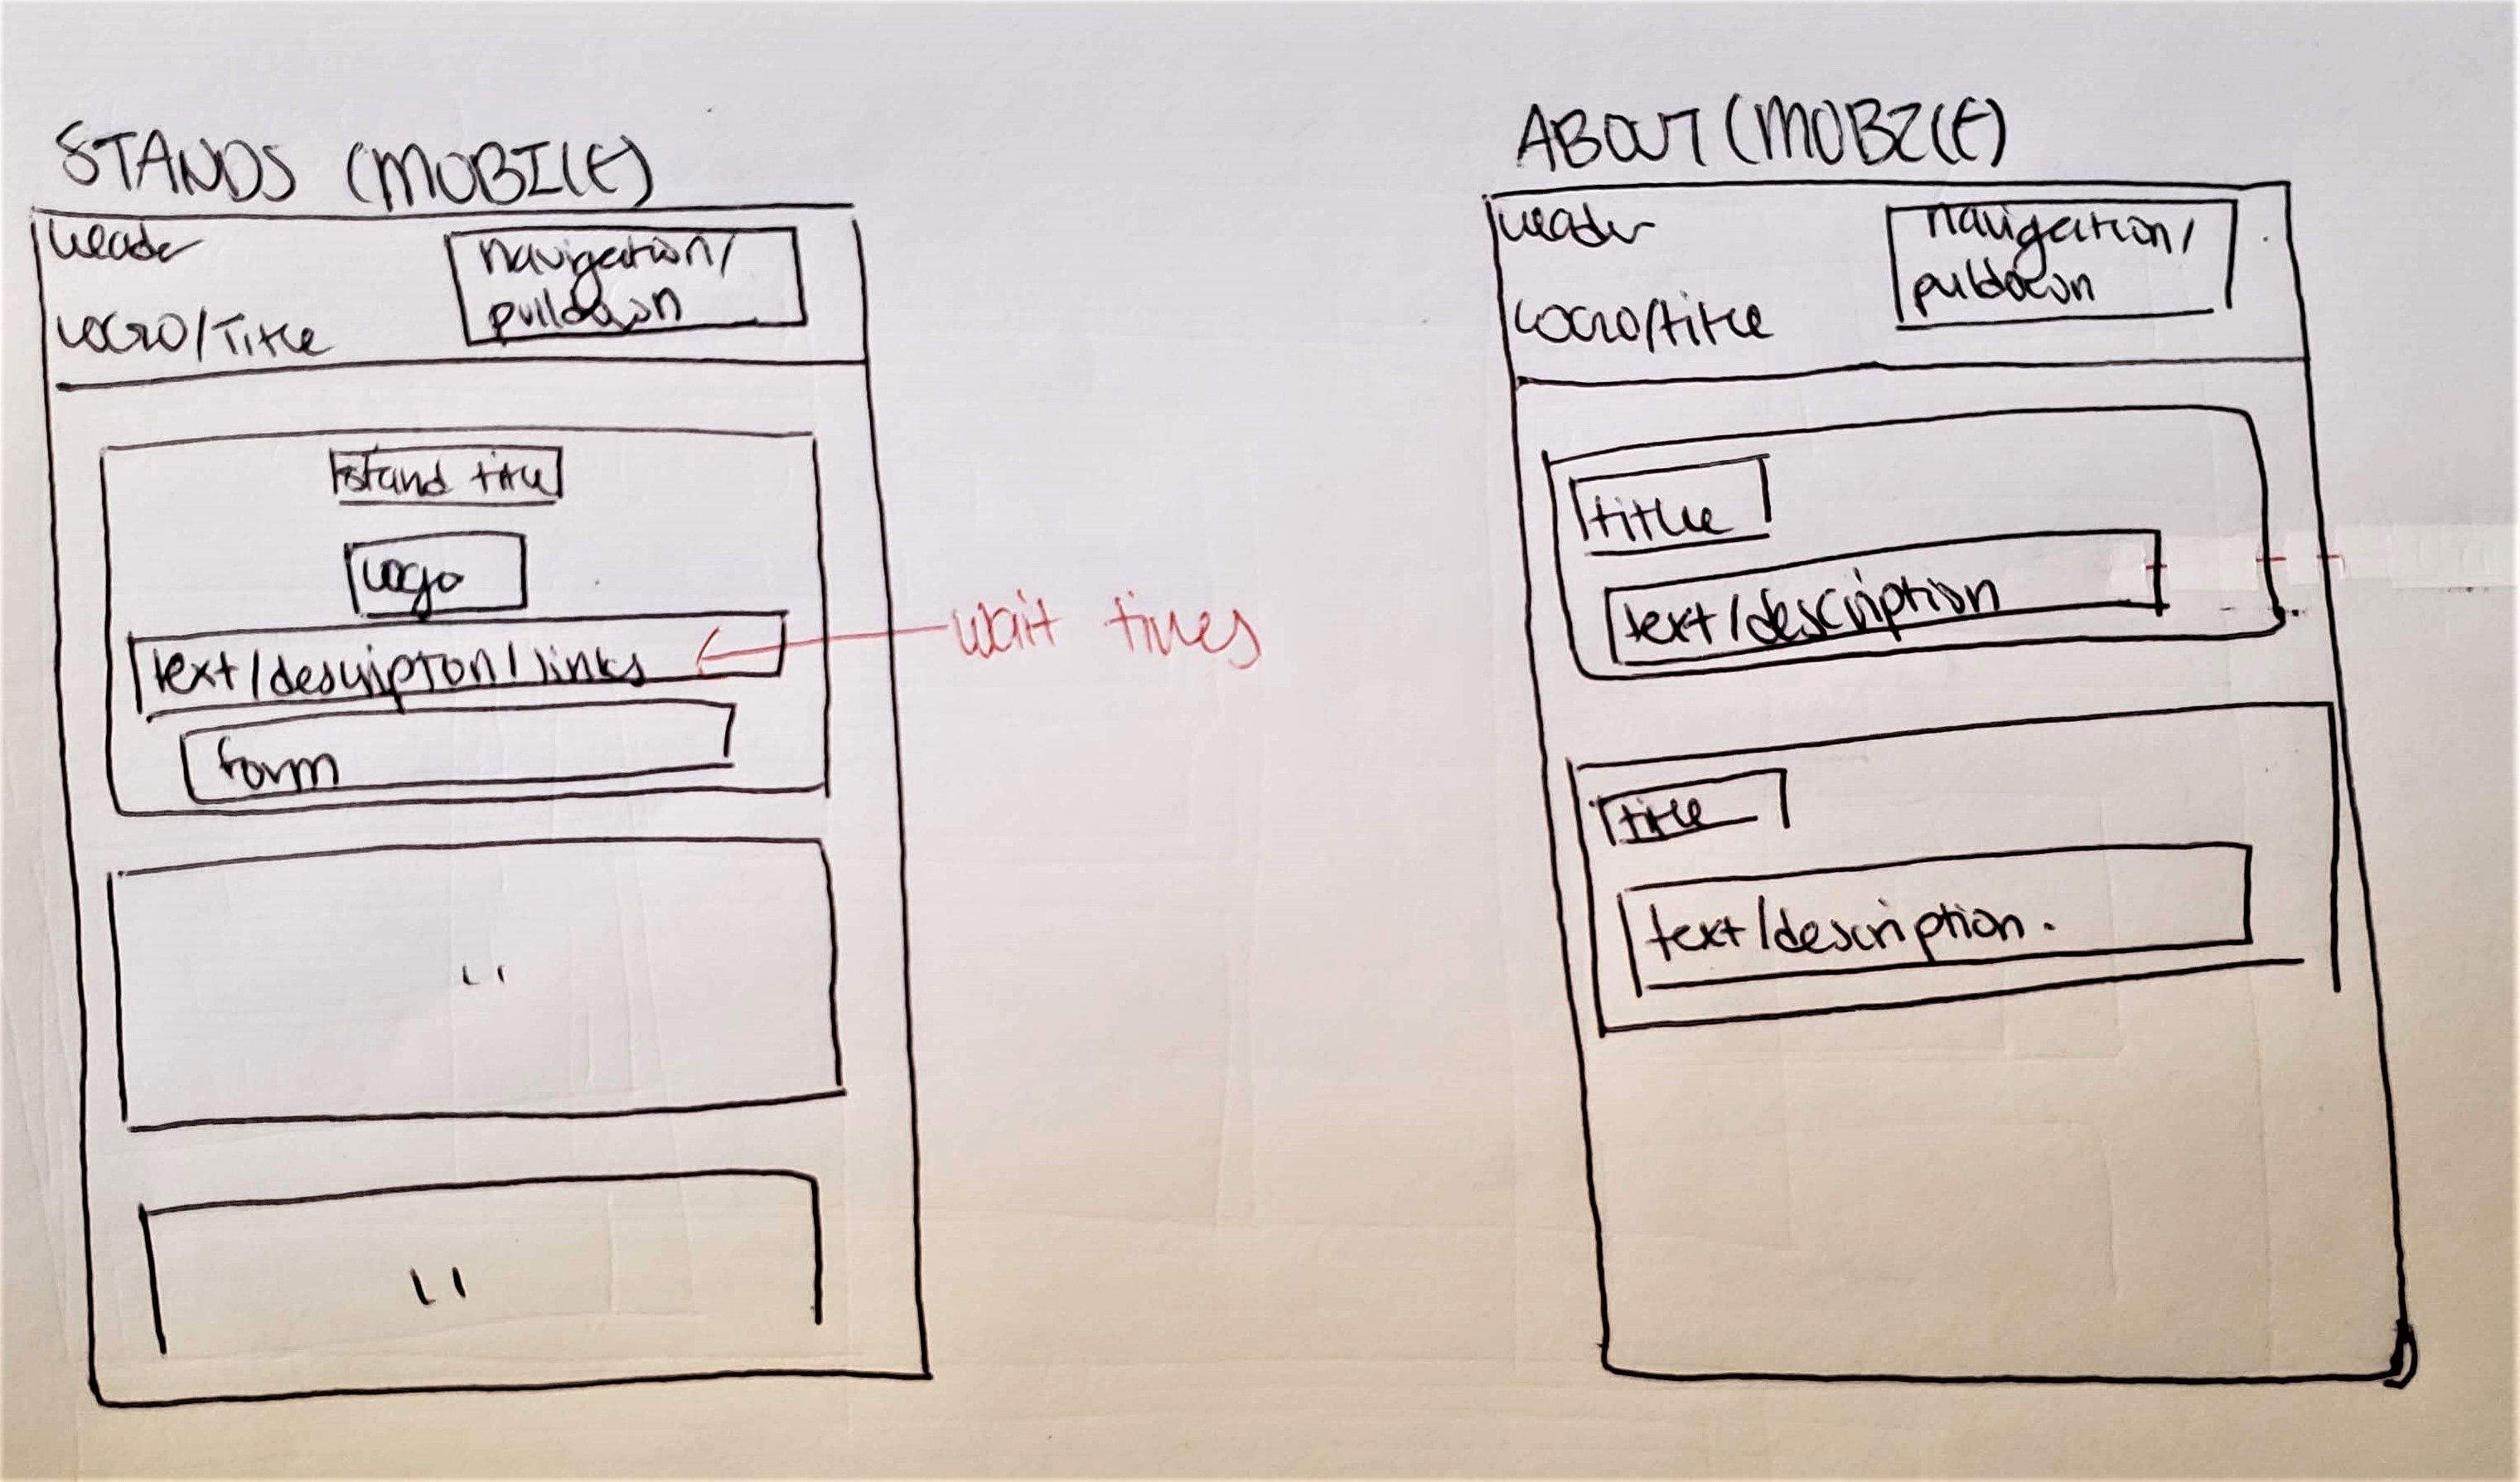 STANDS (MOBILE)
header
navigation/
pulldown
LOGO/Title
stand title
logo
text/description/links
wait times
form
''
''
ABOUT (MOBILE)
header
navigation/
pulldown
LOGO/title
title
text/description
title
text/description.